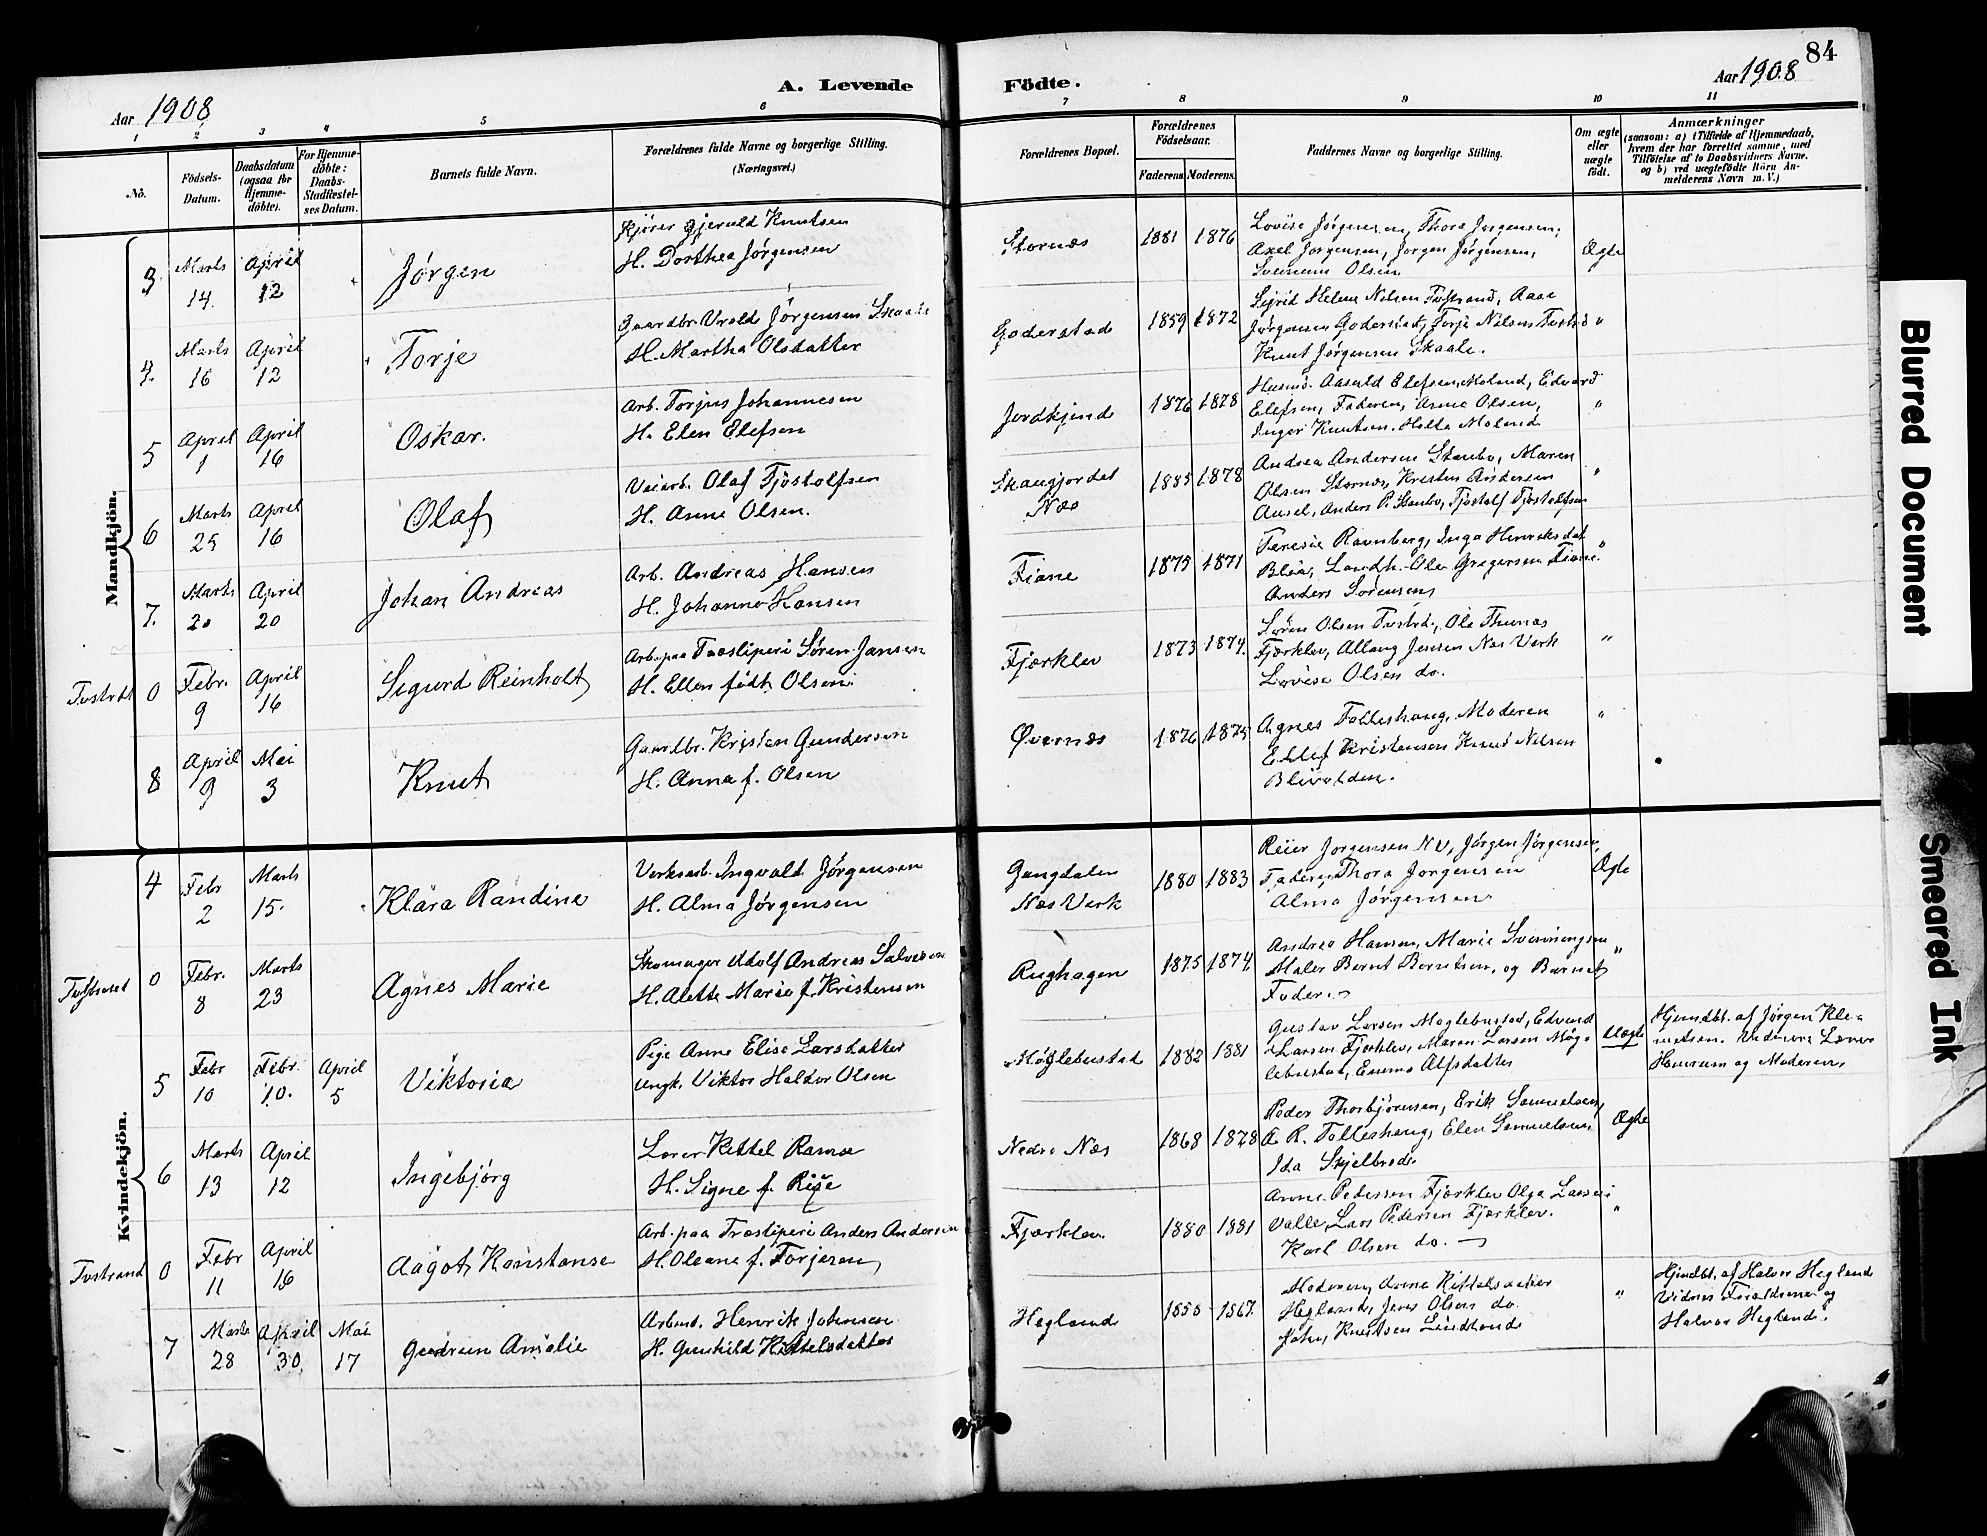 84
A. Levende Födte.
Aar 1908
Aar 1908
1 2 3 4 5 6 7 8 9 10 11
No.
Födsels-Datum.
Daabsdatum (ogsaa for Hjemme-döbte).
For Hjemme-döbte: Daabs-Stadfæstel-ses Datum.
Barnets fulde Navn.
Forældrenes fulde Navne og borgerlige Stilling.
(Næringsvei.)
Forældrenes Bopæl.
Forældrenes Födselsaar.
Faderens. Moderens.
Faddernes Navne og borgerlige Stilling.
Om ægte eller uægte født.
Anmærkninger
(saasom: a) i Tilfælde af Hjemmedaab, hvem der har forrettet samme, med Tilföielse af to Daabsvidners Navne, og b) ved uægtefödte Börn An-melderens Navn m. V.)
Mandkjön.
3 Marts 14 April 12 Jørgen
Kjører Gjeruld Knutsen
H. Dorthea Jørgensen
Stornæs 1881 1876
Lovise Jørgensen, Thora Jørgensen,
Axel Jørgensen, Jørgen Jørgensen,
Olsen
Ægte
4. Marts 16 April 12 Torje
Gaardbr. Jørgensen Skaale
H. Martha Olsdatter
Goderstad 1859 1872
Sigrid Helene Nilsen Tvstrand, Aase
Jørgensen Goderstad, Torje Nilsen
Knut Jørgensen Skaale.
"
5 April 1 April 16 Oskar.
Arb. Torjus Johannesen
H. Elen Elefsen
Jordkjend 1876 1878
Aasuld Elefsen, Moland, Edvard
Elefsen, Faderen, Anne Olsen,
Inger Knutsen, Moland
"
6 Marts 25 April 16 Olaf
Veiarb. Olaf Fjøstolfsen
H. Anne Olsen.
Skaugjordet
Næs
1885 1878
Andrea Andersen Staubø, Maren
Olsen Stornæs, Kristen Andersen
Anders P. Staubø, Fjøstolf Fjøstolfsen
"
7. Marts 20 April 20 Johan Andreas
Arb. Andreas Hansen
H. Johanne Hansen
Fiane 1875 1871
Teresie Ravnberg, Inga
Ole Gregersen Fiane
Anders Sørensen
"
Tvstrd. 0 Febr. 9 April 16 Sigurd Reinholt
Arb. paa Træsliperi Søren Jansen
H. Ellen født Olsen
Fjærklev 1873 1874.
Søren Olsen Tvstrd., Ole Thunæs
Fjærklev, Allaug Jensen Næs Værk
Lovise Olsen do.
"
8 April 9 Mai 3 Knut
Gaardbr. Kristen Gundersen
H. Anna f. Olsen
Øvernæs 1876 1875
Agnes Folleshaug, Moderen
Ellef Kristensen Knud Nilsen
"
Kvindekjön.
4 Febr 2 Marts 15. Klara Randine
Verksarb. Ingvald Jørgensen
H. Alma Jørgensen
Gangdalen
Næs Verk
1880 1883
Reier Jørgensen Nv, Jørgen Jørgensen,
Faderen, Thora Jørgensen
Alma Jørgensen
Ægte
Tvstrand 0 Febr. 8 Marts 23 Agnes Marie
Skomager Adolf Andreas Salvesen
H. Alette Marie f. Kristensen
Rughagen 1875 1874
Andrea Hansen, Marie Svenningsen
Maler Bernt Berntsen, og Barnets
Fader.
"
5 Febr 10 Febr. 10. April 5 Viktoria
Pige Anne Elise Larsdatter
Ungk. Viktor Haldor Olsen
Møglebustad 1882 1881
Gustav Larsen Møglebustad, Edvard
Larsen Fjærklev, Maren Larsen Møg-
lebustad, Emma Alfsdatter
Uægte
Hjemdbt. af Jørgen Kle-
metsen. Vidnerne
og Moderen
6 Marts 13 April 12 Ingebjørg
Lærer Kittel Ramse
H. Signe f. Rise
Nedre Næs 1868 1878
Peder Thorbjørnsen, Erik Samuelsen,
A. R. Folleshaug, Elen Samuelsen,
Ida Skjelbred.
Ægte
Tvstrand 0 Febr 11 April 16 Aagot Konstanse
Arb. paa Træsliperi Anders Andersen
H. Oleane f. Torjesen
Fjærklev 1880 1881
Anne Pedersen Fjærklev Olga Larsen
Valle, Lars Pedersen Fjærklev.
Karl Olsen do.
"
7 Marts 28 April 30 Mai 17 Gudrun Amalie
Arbmd. Henrik Johnsen
H. Gunhild Kittelsdatter
Hegland 1850 1867.
Moderen, Anne Kittelsdatter
Hegland, Jens Olsen do.
John Knutsen Lindland
"
Hjmdbt. af Halvor Hegland
Vidner Forældrene og
Halvor Hegland.
Blurred Document
Smeared Ink